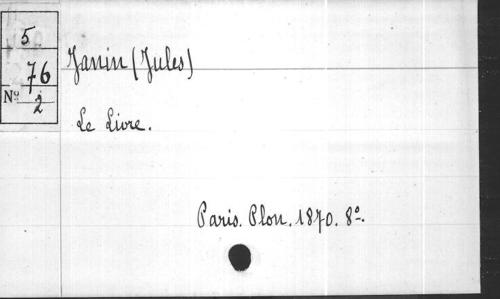 5
76
Nº 2
Janin (Jules)
Le Livre.
Paris. Plon. 1870. 8º.